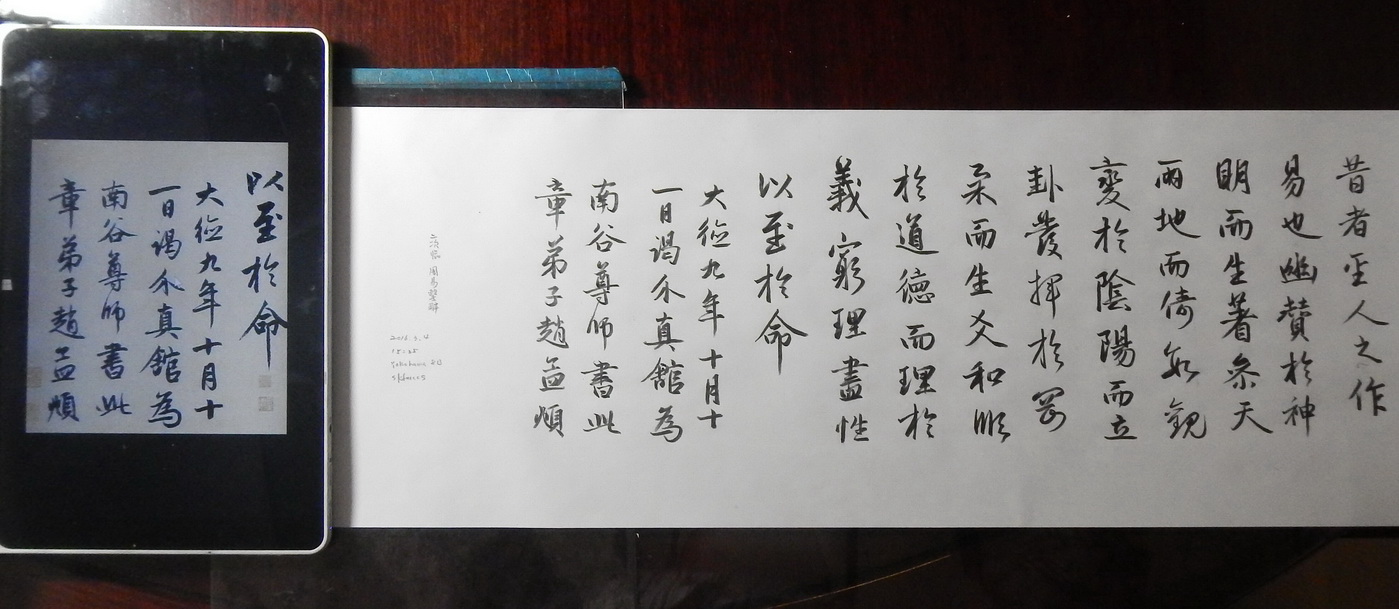 昔者聖人之作
易也幽贊於神
明而生蓍叅天
兩地而倚數觀
變於陰陽而立
卦發揮於剛
柔而生爻和順
於道德而理於
義窮理盡性
以至於命
大德九年十月十
一日謁升真館為
南谷尊師書此
章弟子趙孟頫
周易繫辭
以至於命
大德九年十月十
一日謁升真館為
南谷尊師書此
章弟子趙孟頫